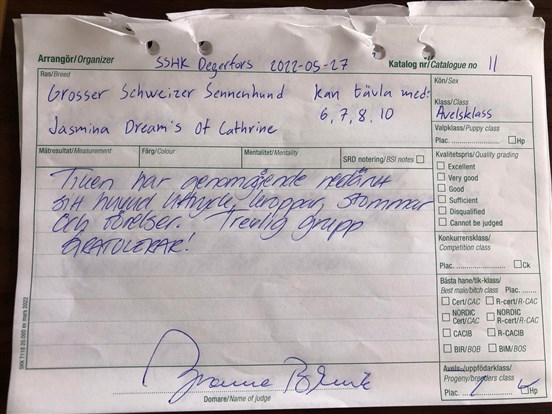 Arrangör/Organizer SSHK Degerfors 2022-05-27 Katalog nr/Catalogue no 11
Ras/Breed Kön/Sex
Grosser Schweizer Sennenhund kan tävla med:
6, 7, 8, 10
Klass/Class
Avelsklass
Jasmina Dream's Of Cathrine
Valpklass/Puppy class
Plac. Hp
Mätresultat/Measurement Färg/Colour Mentalitet/Mentality SRD notering/BSI notes
Kvalitetspris/Quality grading
Excellent
Very good
Good
Sufficient
Disqualified
Cannot be judged
Tiken har genomgående nedärvt
sitt huvud uttryck, kroppar, stommar
och rörelser. Trevlig grupp
GRATULERAR!
Konkurrensklass/
Competition class
Plac. Ck
Bästa hane/tik-klass/
Best male/bitch class Plac.
Cert/CAC R-cert/R-CAC
NORDIC Cert/CAC NORDIC R-cert/R-CAC
CACIB R-CACIB
BIR/BOB BIM/BOS
Avels-/uppfödarklass/
Progeny/breeders class
Plac. Hp
Domare/Name of judge
SKK 7110 20.000 ex mars 2022